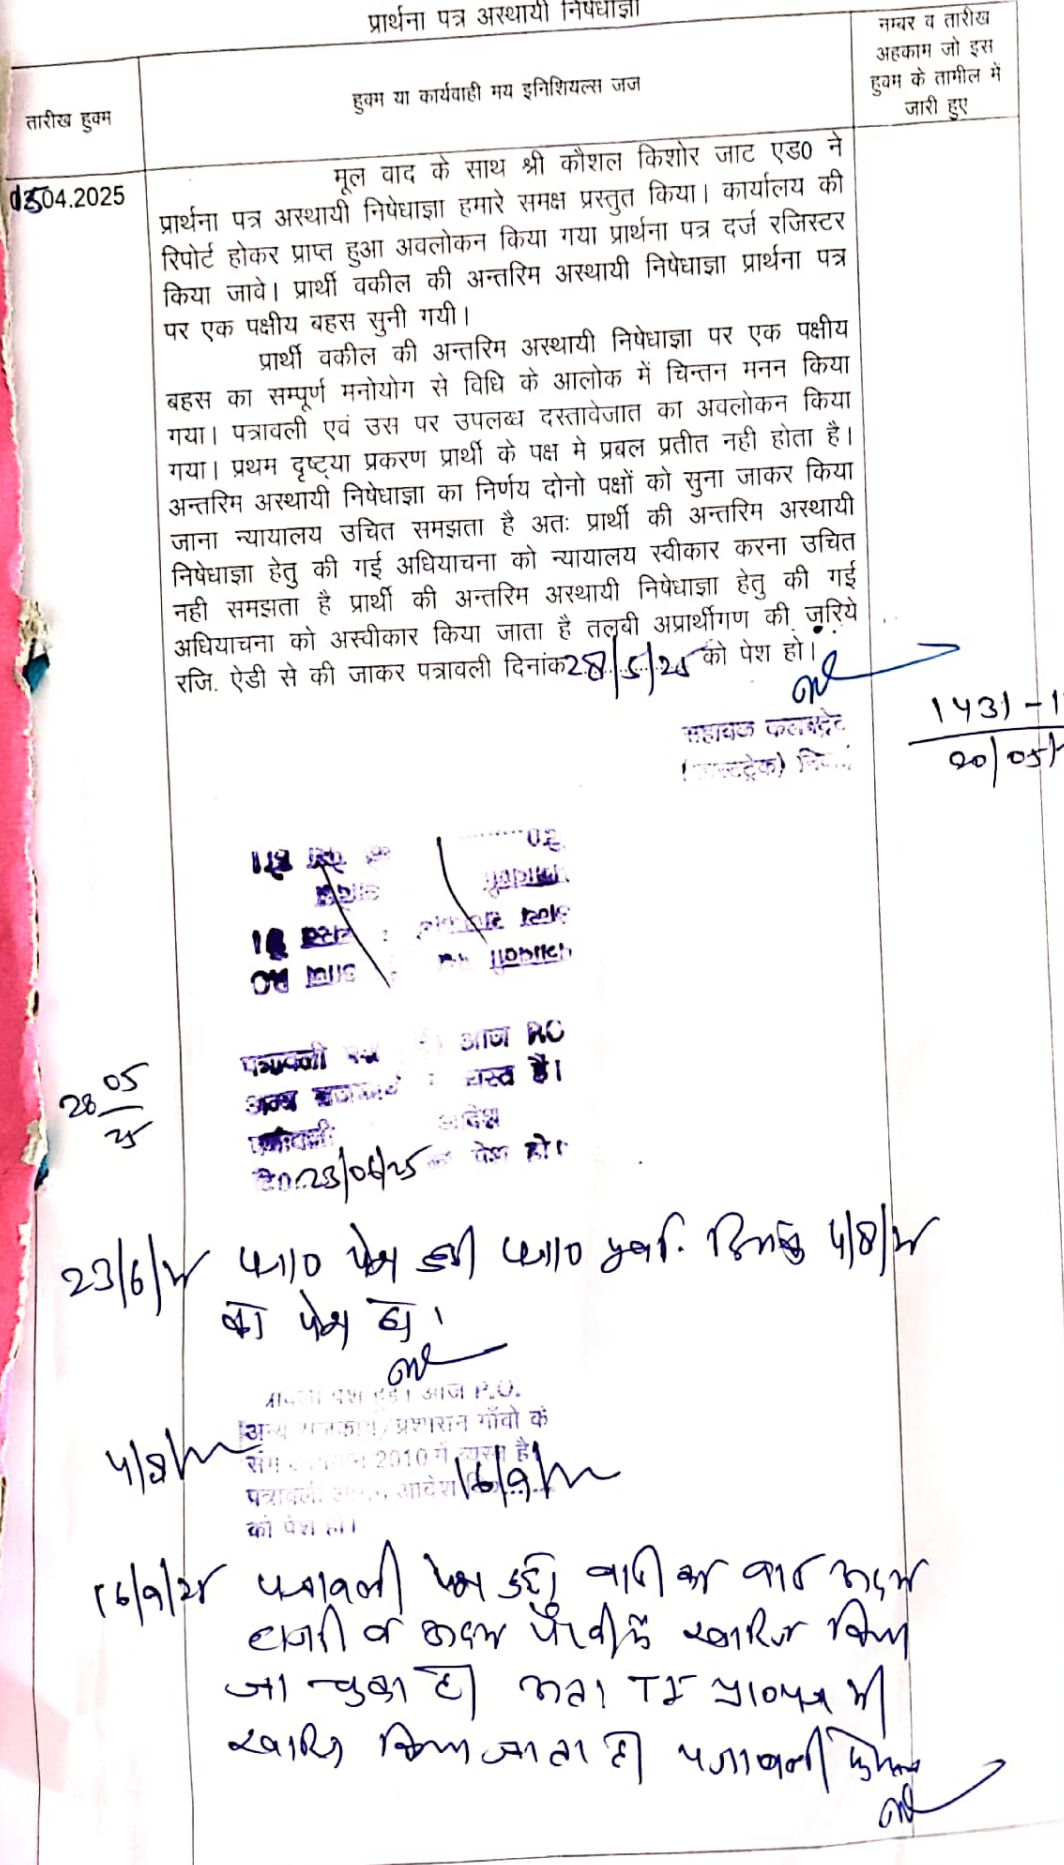 प्रार्थना पत्र अस्थायी निषेधाज्ञा
तारीख हुक्म
हुक्म या कार्यवाही मय इनिशियल्स जज
नम्बर व तारीख
अहकाम जो इस
हुक्म के तामील में
जारी हुए
04.2025
मूल वाद के साथ श्री कौशल किशोर जाट एड0 ने
प्रार्थना पत्र अस्थायी निषेधाज्ञा हमारे समक्ष प्रस्तुत किया। कार्यालय की
रिपोर्ट होकर प्राप्त हुआ अवलोकन किया गया प्रार्थना पत्र दर्ज रजिस्टर
किया जावे। प्रार्थी वकील की अन्तरिम अस्थायी निषेधाज्ञा प्रार्थना पत्र
पर एक पक्षीय बहस सुनी गयी।
प्रार्थी वकील की अन्तरिम अस्थायी निषेधाज्ञा पर एक पक्षीय
बहस का सम्पूर्ण मनोयोग से विधि के आलोक में चिन्तन मनन किया
गया। पत्रावली एवं उस पर उपलब्ध दस्तावेजात का अवलोकन किया
गया। प्रथम दृष्ट्या प्रकरण प्रार्थी के पक्ष मे प्रबल प्रतीत नही होता है।
अन्तरिम अस्थायी निषेधाज्ञा का निर्णय दोनो पक्षों को सुना जाकर किया
जाना न्यायालय उचित समझता है अतः प्रार्थी की अन्तरिम अस्थायी
निषेधाज्ञा हेतु की गई अधियाचना को न्यायालय स्वीकार करना उचित
नही समझता है प्रार्थी की अन्तरिम अस्थायी निषेधाज्ञा हेतु की गई
अधियाचना को अस्वीकार किया जाता है तलबी अप्रार्थीगण की जरिये
रजि. ऐडी से की जाकर पत्रावली दिनांक 28/5/25 को पेश हो।
सहायक कलक्ट्रेट
1431-1
20/05/
28 05/25
पत्रावली आज RC
अन्य व्यस्त है।
पत्रावली आदेश
23/06/25 पेश हो।
23/6/25 पत्रा0 पेश हुई पत्रा0 दिनांक 4/8/25
को पेश हो।
पेश हुई। आज P.O.
अन्य राजकार्य/प्रशासन गाँवो के
2010 में व्यस्त है।
4/8/25
आदेश 16/9/25
को पेश हो।
16/9/25 पत्रावली पेश हुई। वादी का वाद अदम
हाजरी व अदम पैरवी में खारिज किया
जा चुका है। अतः TI प्रा0पत्र भी
खारिज किया जाता है। पत्रावली